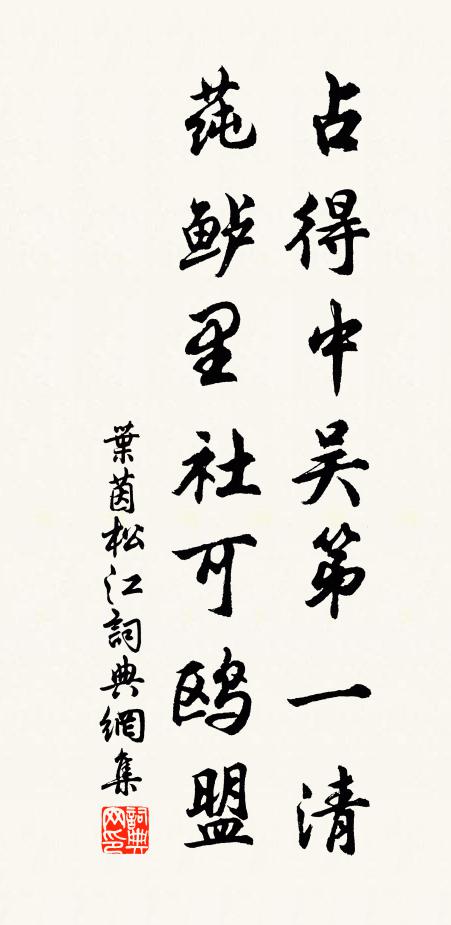 占得中吴第一清
莼鲈里社可鸥盟
葉茵松江詞典網集
詞典網印